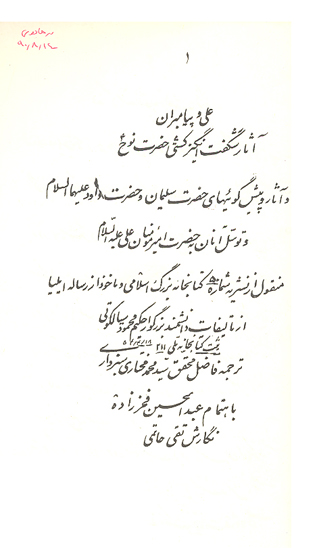 ۱
علی و پیامبران
آثار شگفت انگیز کشتی حضرت نوح ع
و آثار و پیش گوئیهای حضرت سلمان و حضرت داود علیهما السلام
و توسل آنان به حضرت امیر مؤمنان علی علیه السلام
منقول از نشریه شماره کتابخانه بزرگ اسلامی و ماخوذ از رساله ایلیا
از تالیفات دانشمند بزرگوار حکیم محمود سیالکوتی
ثبت کتابخانه ملی
ترجمه فاضل محقق سید محمد مختاری سبزواری
باهتمام عبدالحسین فخرزاده
نگارش تقی حاتمی